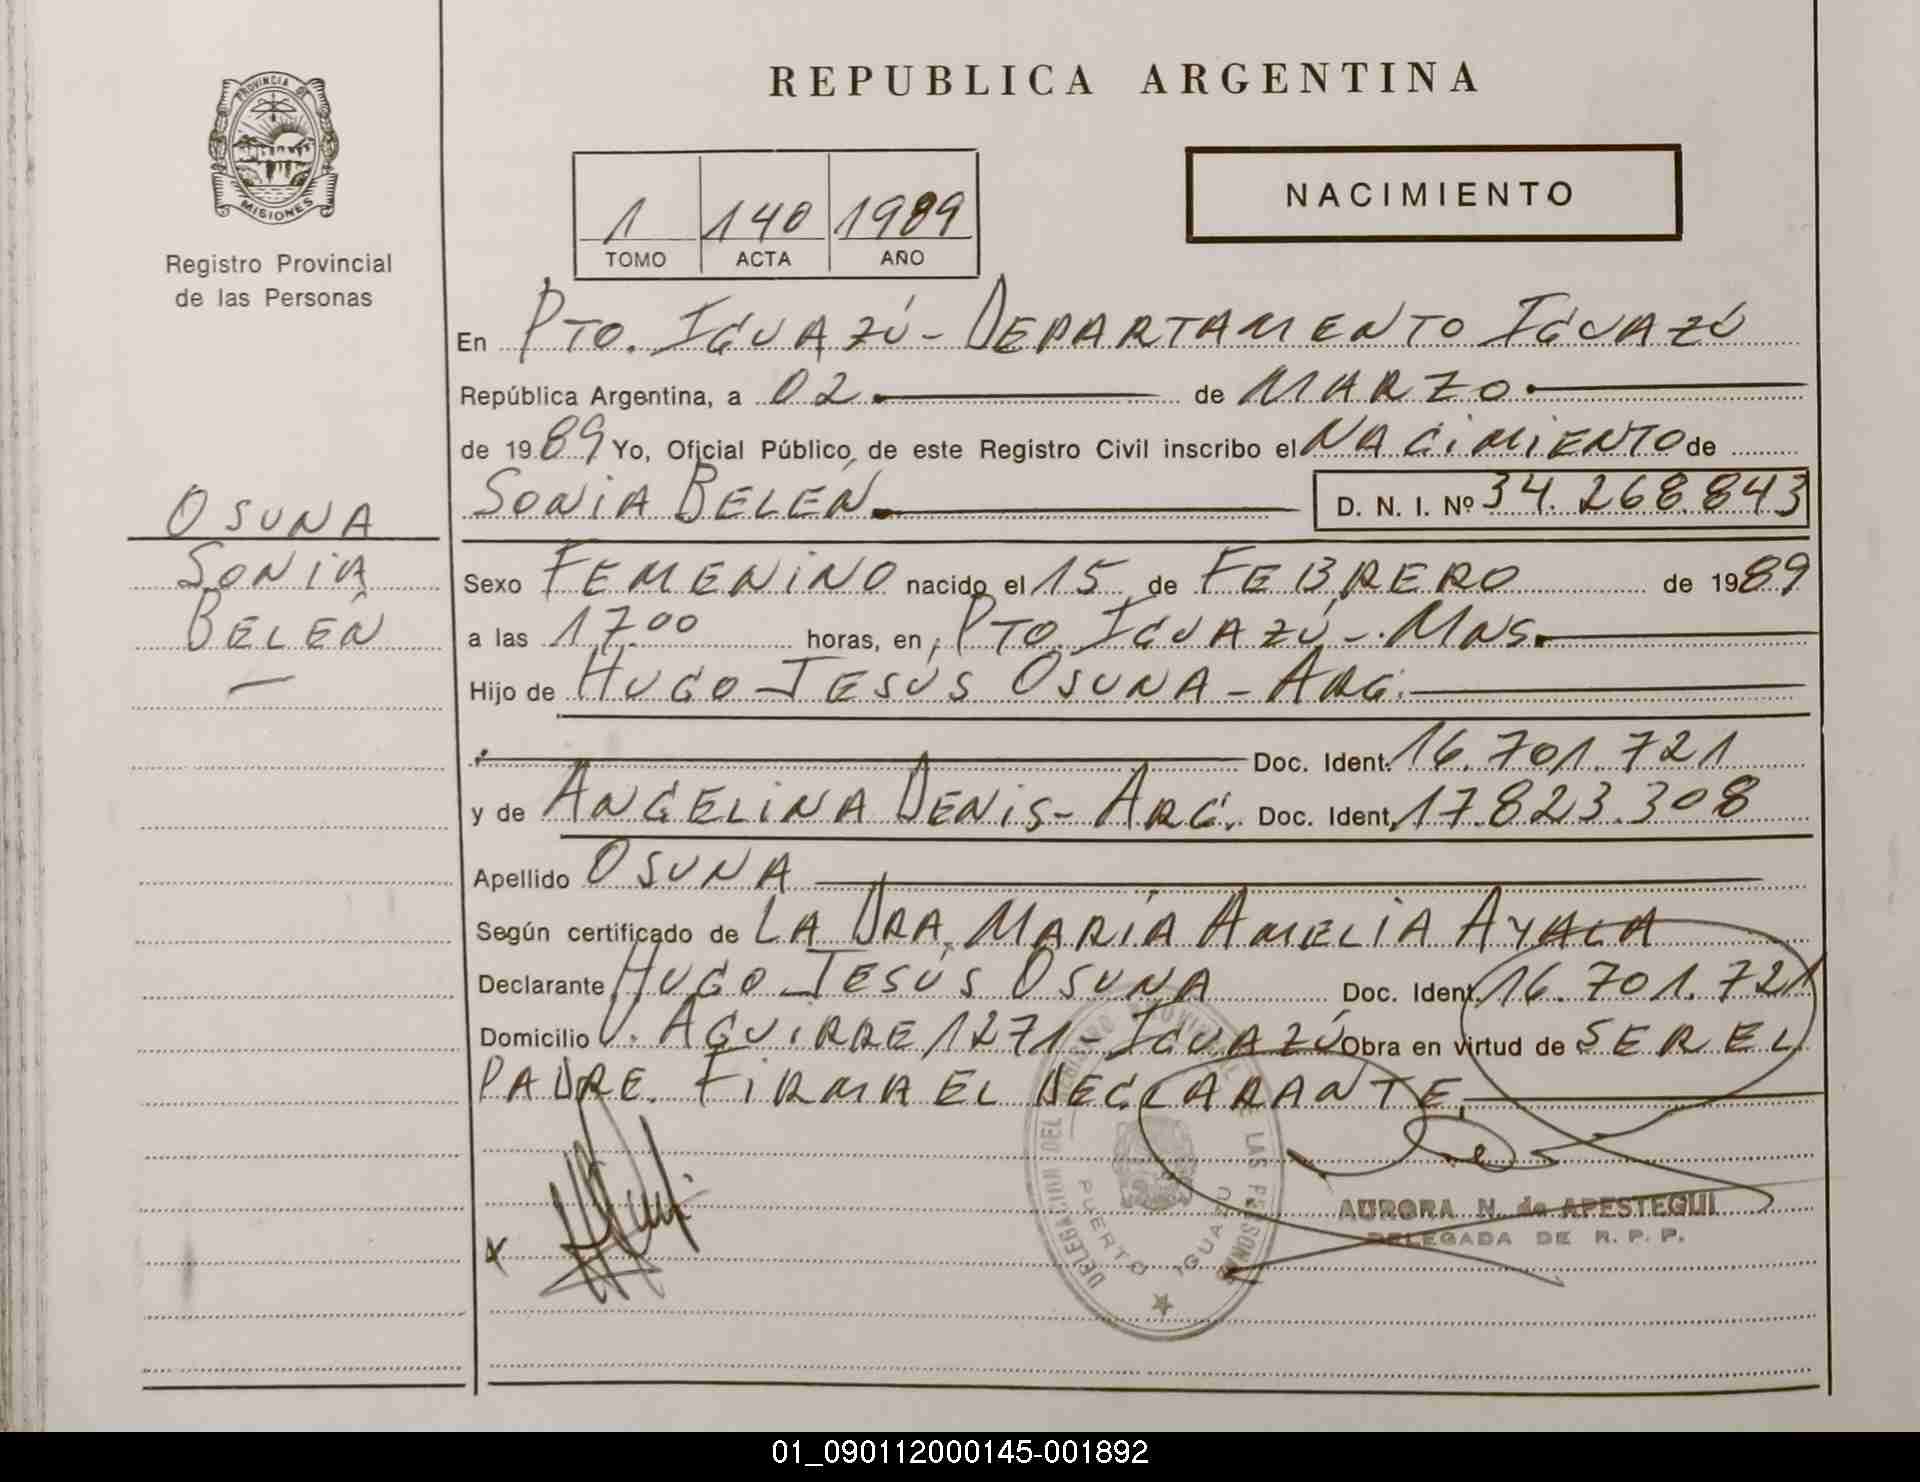 REPUBLICA ARGENTINA
PROVINCIA DE
MISIONES
Registro Provincial
de las Personas
1 140 1989
TOMO ACTA AÑO
NACIMIENTO
En PTO. IGUAZÚ - DEPARTAMENTO IGUAZÚ
República Argentina, a 02 de MARZO
de 1989 Yo, Oficial Público, de este Registro Civil inscribo el NACIMIENTO de
SONIA BELÉN D. N. I. Nº 34.268.843
OSUNA
SONIA
BELÉN
Sexo FEMENINO nacido el 15 de FEBRERO de 1989
a las 17.00 horas, en PTO. IGUAZÚ - MNS.
Hijo de HUGO JESÚS OSUNA - ARG.
Doc. Ident. 16.701.721
y de ANGELINA DENIS - ARG. Doc. Ident. 17.823.308
Apellido OSUNA
Según certificado de LA DRA. MARÍA AMELIA AYALA
Declarante HUGO JESÚS OSUNA Doc. Ident. 16.701.721
Domicilio V. AGUIRRE 1271 - IGUAZÚ Obra en virtud de SER EL
PADRE. FIRMA EL DECLARANTE.
PUERTO IGUAZU
AURORA N. de APESTEGUI
DELEGADA DE R. P. P.
01_090112000145-001892